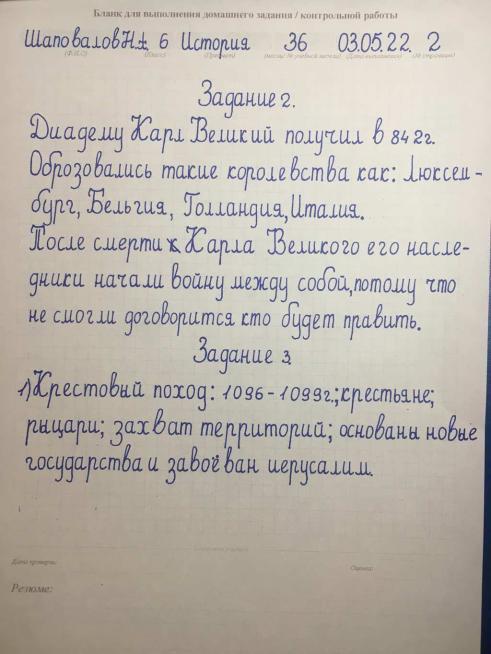 Бланк для выполнения домашнего задания / контрольной работы
Шаповалов Н. 6 История 36 03.05.22. 2
(Ф.И.О) (Класс) (Предмет) (месяц/ № учебной недели) (Дата выполнения) (№ страницы)
Задание 2.
Диадему Карл Великий получил в 842г.
Оброзовались такие королевства как: Люксем-
бург, Бельгия, Голландия, Италия.
После смерти Карла Великого его насле-
дники начали войну между собой, потому что
не смогли договорится кто будет править.
Задание 3.
1) Крестовый поход: 1096-1099г.; крестьяне;
рыцари; захват территорий; основаны новые
государства и завоёван иерусалим.
Дата проверки:
Оценка:
Резюме: